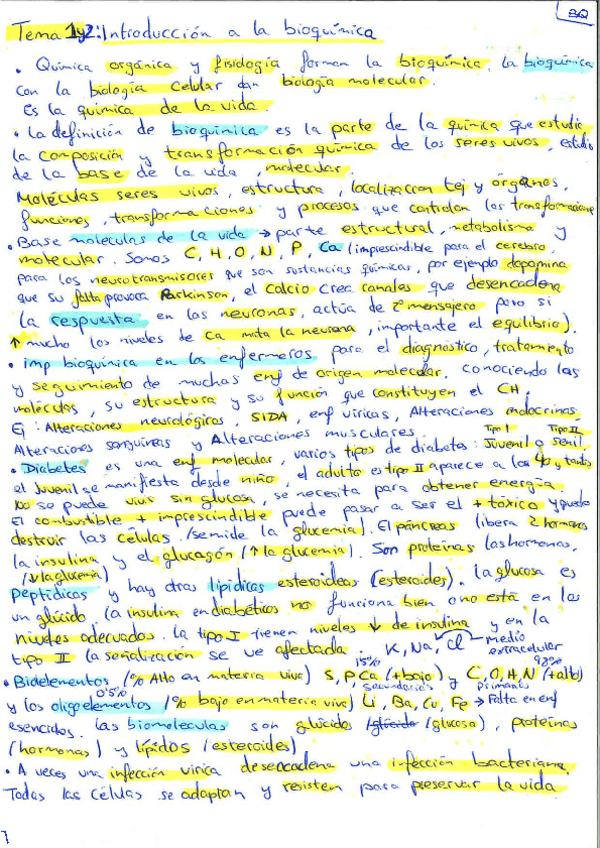 BQ
Tema 1y2: Introducción a la bioquímica
• Química orgánica y fisiología forman la bioquímica. la bioquímica
con la biología celular dan biología molecular.
Es la química de la vida.
• La definición de bioquímica es la parte de la química que estudia
la composición y transformación química de los seres vivos, estudio
de la base de la vida, molecular.
Moléculas seres vivos, estructura, localizacion tej y órganos,
funciones, transformaciones y procesos que controlan las transformaciones
• Base moleculas de la vida → parte estructural, metabolismo y
molecular. Somos C, H, O, N, P, Ca (imprescindible para el cerebro,
para los neurotransmisores que son sustancias químicas, por ejemplo dopamina
que su falta provoca Parkinson, el calcio crea canales que desencadena
la respuesta en las neuronas, actúa de 2º mensajero pero si
↑ mucho los niveles de Ca mata la neurona, importante el equilibrio).
• imp bioquímica en los enfermeros para el diagnóstico, tratamiento
y seguimiento de muchas enf de origen molecular, conociendo las
moléculas, su estructura y su función que constituyen el CH.
Ej: Alteraciones neurológicas, SIDA, enf víricas, Alteraciones endocrinas,
Alteraciones sanguíneas y Alteraciones musculares. Tipo I Tipo II
• Diabetes es una enf molecular, varios tipos de diabetes: Juvenil o senil.
el Juvenil se manifiesta desde niño, el adulto es tipo II aparece a los 40 y tantos
no se puede vivir sin glucosa, se necesita para obtener energía
El combustible + imprescindible puede pasar a ser el + tóxico y puede
destruir las células. (se mide la glucemia). El páncreas libera 2 hormonas
la insulina y el glucagón (↑ la glucemia). Son proteínas las hormonas,
(↓ la glucemia)
Peptídicas y hay otras lipídicas esteroideas (esteroides). La glucosa es
un glúcido. La insulina en diabéticos no funciona bien o no está en los
niveles adecuados. La tipo I tienen niveles ↓ de insulina y en la
tipo II la señalización se ve afectada. K, Na, Cl → Medio extracelular
• Bioelementos (% Alto en materia viva) S, P, Ca (+ bajo) y C, O, H, N (+ alto)
15% secundarios primarios 98%
y los oligoelementos (% bajo en materia viva) Li, Ba, Cu, Fe → Falta en enf
0'5%
esenciales. las biomoleculas son glúcidos (glucosa), proteínas
(hormonas) y lípidos (esteroides)
• A veces una infección vírica desencadena una infección bacteriana.
Todas las células se adaptan y resisten para preservar la vida